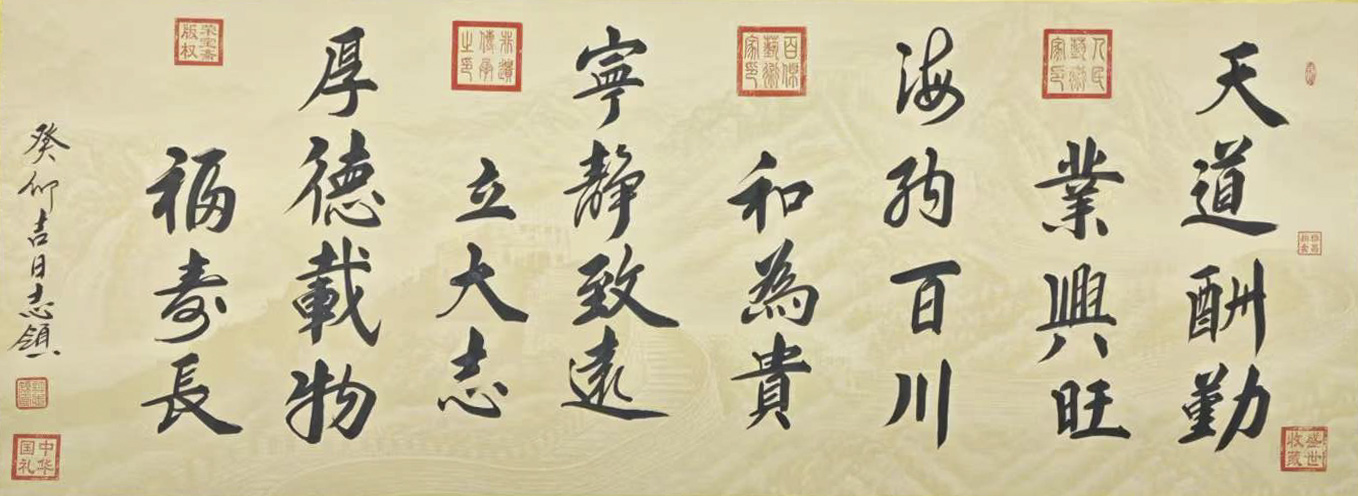 天道酬勤
業興旺
人民藝術家印
海納百川
和為貴
百傑藝術家印
寧靜致遠
立大志
非遺傳承之印
厚德載物
福壽長
榮宝斋版权
癸卯吉日志領
中华国礼
盛世收藏